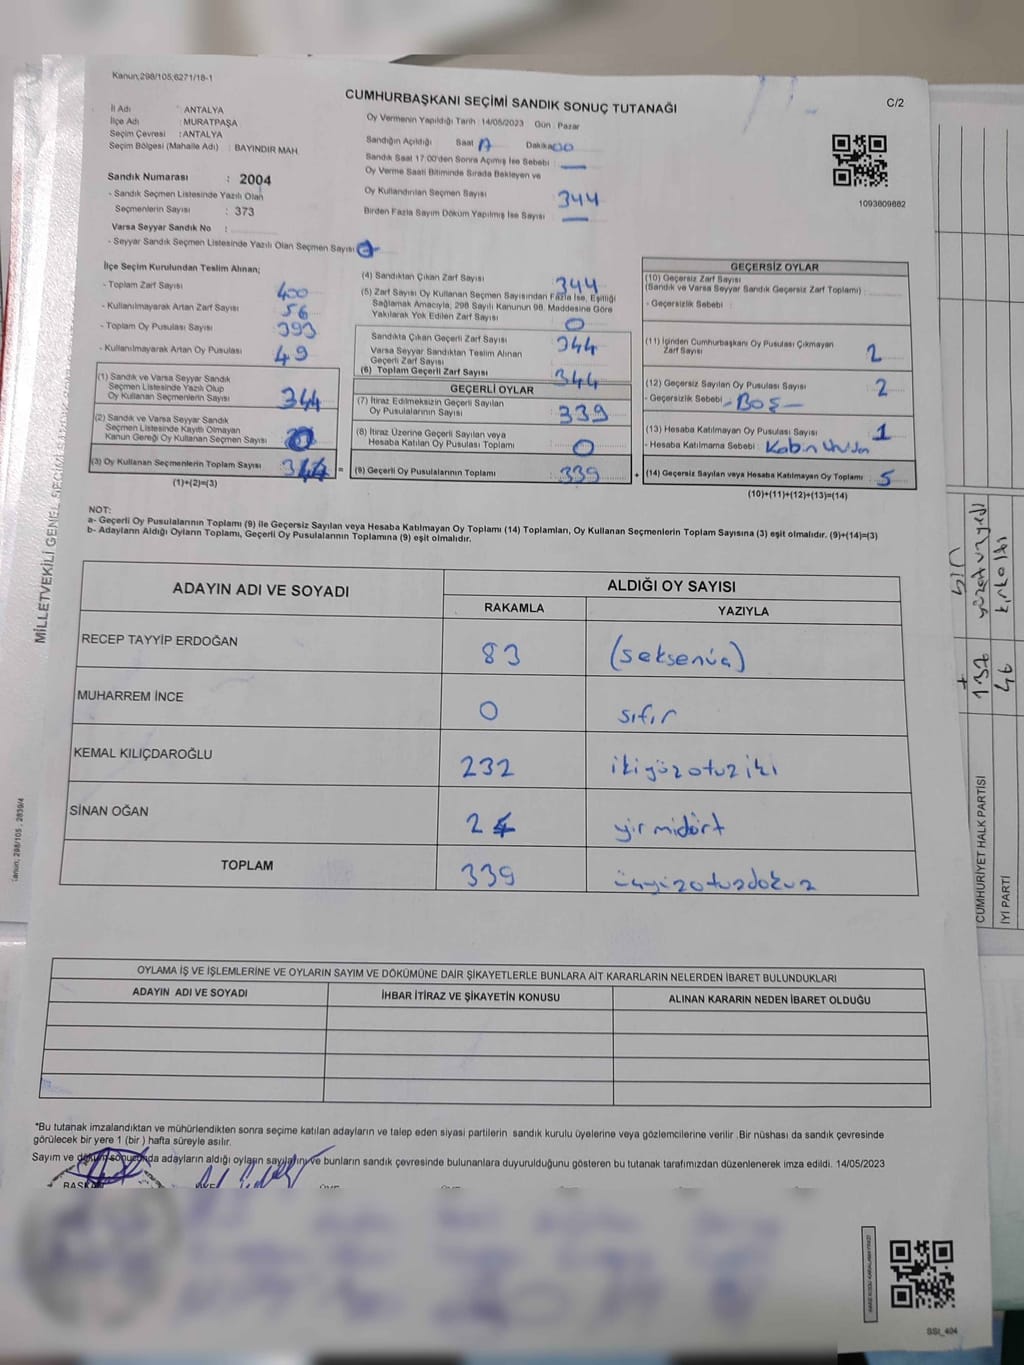 Kanun;298/105,6271/18-1
CUMHURBAŞKANI SEÇİMİ SANDIK SONUÇ TUTANAĞI
C/2
İl Adı : ANTALYA
İlçe Adı : MURATPAŞA
Seçim Çevresi : ANTALYA
Seçim Bölgesi (Mahalle Adı) : BAYINDIR MAH.
Sandık Numarası : 2004
- Sandık Seçmen Listesinde Yazılı Olan
Seçmenlerin Sayısı : 373
Varsa Seyyar Sandık No :
- Seyyar Sandık Seçmen Listesinde Yazılı Olan Seçmen Sayısı
Oy Vermenin Yapıldığı Tarih :14/05/2023 Gün : Pazar
Sandığın Açıldığı Saat Dakika 00
Sandık Saat 17:00'den Sonra Açılmış İse Sebebi : —
Oy Verme Saati Bitiminde Sırada Bekleyen ve
Oy Kullandırılan Seçmen Sayısı 344
Birden Fazla Sayım Döküm Yapılmış İse Sayısı —
1093609682
İlçe Seçim Kurulundan Teslim Alınan;
- Toplam Zarf Sayısı 400
- Kullanılmayarak Artan Zarf Sayısı 56
- Toplam Oy Pusulası Sayısı 393
- Kullanılmayarak Artan Oy Pusulası 49
(1) Sandık ve Varsa Seyyar Sandık
Seçmen Listesinde Yazılı Olup
Oy Kullanan Seçmenlerin Sayısı 344
(2) Sandık ve Varsa Seyyar Sandık
Seçmen Listesinde Kayıtlı Olmayan
Kanun Gereği Oy Kullanan Seçmen Sayısı 0
(3) Oy Kullanan Seçmenlerin Toplam Sayısı 344
(1)+(2)=(3)
(4) Sandıktan Çıkan Zarf Sayısı 344
(5) Zarf Sayısı Oy Kullanan Seçmen Sayısından Fazla İse, Eşitliği
Sağlamak Amacıyla, 298 Sayılı Kanunun 98. Maddesine Göre
Yakılarak Yok Edilen Zarf Sayısı 0
Sandıkta Çıkan Geçerli Zarf Sayısı 344
Varsa Seyyar Sandıktan Teslim Alınan
Geçerli Zarf Sayısı
(6) Toplam Geçerli Zarf Sayısı 344
GEÇERLİ OYLAR
(7) İtiraz Edilmeksizin Geçerli Sayılan
Oy Pusulalarının Sayısı 339
(8) İtiraz Üzerine Geçerli Sayılan veya
Hesaba Katılan Oy Pusulası Toplamı 0
= (9) Geçerli Oy Pusulalarının Toplamı 339 +
GEÇERSİZ OYLAR
(10) Geçersiz Zarf Sayısı
(Sandık ve Varsa Seyyar Sandık Geçersiz Zarf Toplamı) :
- Geçersizlik Sebebi :
(11) İçinden Cumhurbaşkanı Oy Pusulası Çıkmayan
Zarf Sayısı 2
(12) Geçersiz Sayılan Oy Pusulası Sayısı 2
- Geçersizlik Sebebi - BOŞ -
(13) Hesaba Katılmayan Oy Pusulası Sayısı 1
- Hesaba Katılmama Sebebi : Kabin
(14) Geçersiz Sayılan veya Hesaba Katılmayan Oy Toplamı 5
(10)+(11)+(12)+(13)=(14)
NOT:
a- Geçerli Oy Pusulalarının Toplamı (9) ile Geçersiz Sayılan veya Hesaba Katılmayan Oy Toplamı (14) Toplamları, Oy Kullanan Seçmenlerin Toplam Sayısına (3) eşit olmalıdır. (9)+(14)=(3)
b- Adayların Aldığı Oyların Toplamı, Geçerli Oy Pusulalarının Toplamına (9) eşit olmalıdır.
ADAYIN ADI VE SOYADI ALDIĞI OY SAYISI
RAKAMLA YAZIYLA
RECEP TAYYİP ERDOĞAN 83 (seksenüç)
MUHARREM İNCE 0 sıfır
KEMAL KILIÇDAROĞLU 232 ikiyüzotuziki
SİNAN OĞAN 24 yirmidört
TOPLAM 339 üçyüzotuzdokuz
OYLAMA İŞ VE İŞLEMLERİNE VE OYLARIN SAYIM VE DÖKÜMÜNE DAİR ŞİKAYETLERLE BUNLARA AİT KARARLARIN NELERDEN İBARET BULUNDUKLARI
ADAYIN ADI VE SOYADI İHBAR İTİRAZ VE ŞİKAYETİN KONUSU ALINAN KARARIN NEDEN İBARET OLDUĞU
*Bu tutanak imzalandıktan ve mühürlendikten sonra seçime katılan adayların ve talep eden siyasi partilerin sandık kurulu üyelerine veya gözlemcilerine verilir .Bir nüshası da sandık çevresinde
görülecek bir yere 1 (bir ) hafta süreyle asılır.
Sayım ve döküm sonucunda adayların aldığı oyların sayılarını ve bunların sandık çevresinde bulunanlara duyurulduğunu gösteren bu tutanak tarafımızdan düzenlenerek imza edildi. 14/05/2023
SSI_404
MİLLETVEKİLİ GENEL SEÇİMİ
Kanun; 298/105 , 2839/4
CUMHURİYET HALK PARTİSİ 137 yüzotuzyedi
İYİ PARTİ 46 kırkaltı